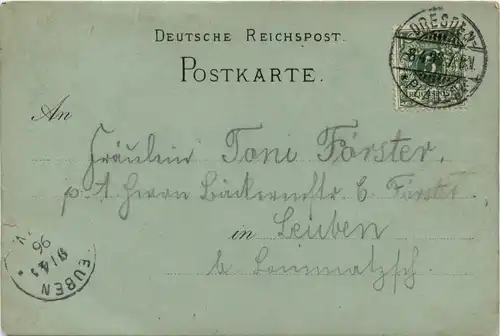 DEUTSCHE REICHSPOST.
POSTKARTE.
DRESDEN
PLAUEN
An
Fräulein Toni Förster,
p. A Herrn Bäckermstr. C. Förster
in Leuben
b. Lommatzsch
EUBEN
9/4
96